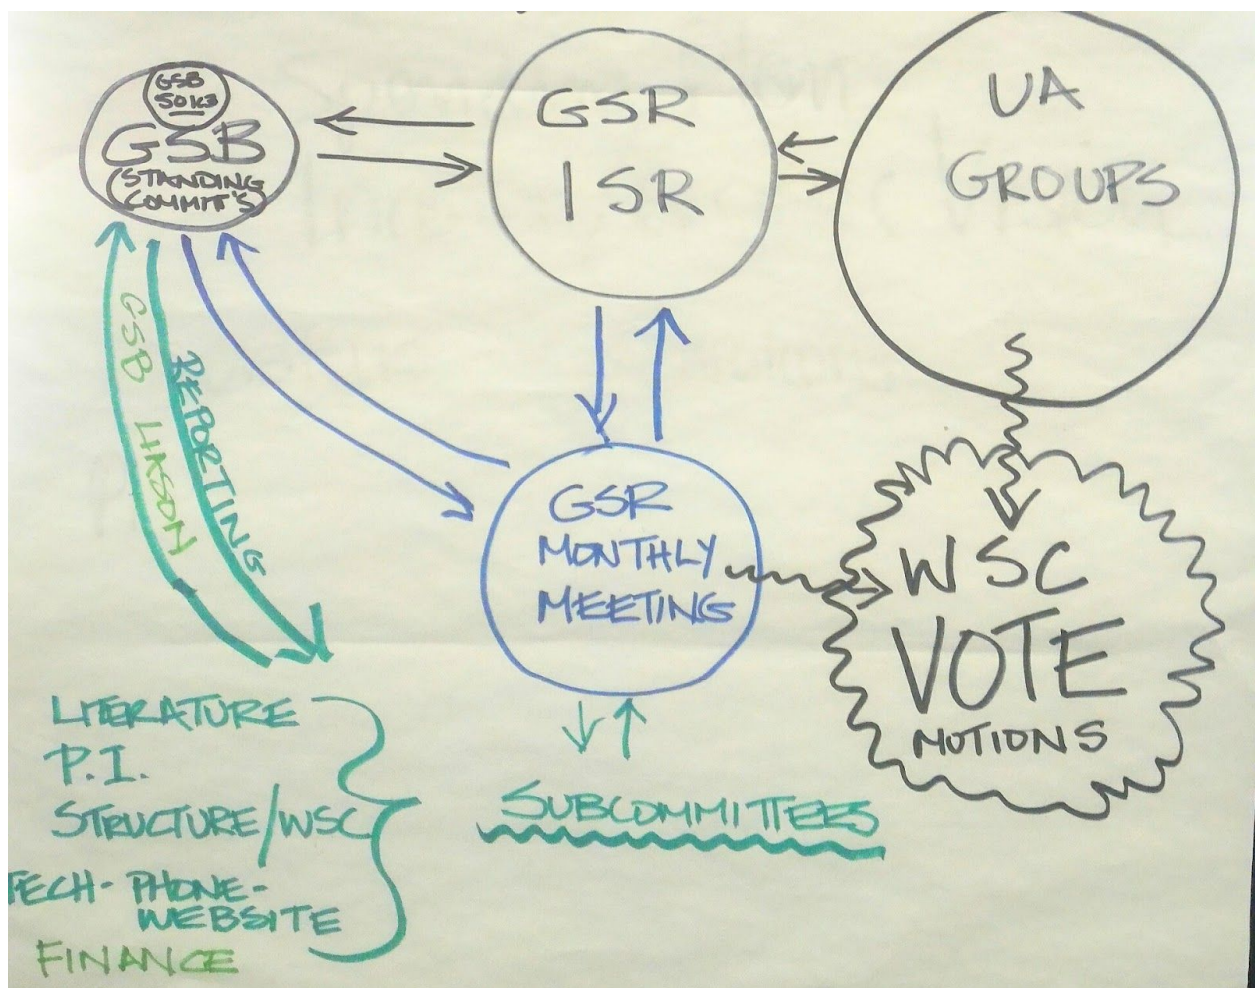 GSB
501c3
GSB
(STANDING
COMMIT'S)
GSR
ISR
UA
GROUPS
GSB LIASON
REPORTING
GSR
MONTHLY
MEETING
WSC
VOTE
MOTIONS
LITERATURE
P.I.
STRUCTURE/WSC
TECH- PHONE-
WEBSITE
FINANCE
SUBCOMMITTEES